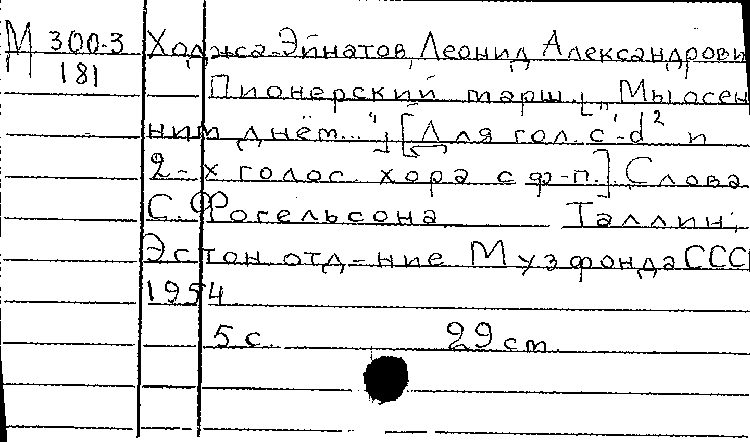 М 300-3 Ходжа-Эйнатов, Леонид Александрови
181
Пионерский марш. [„Мы осен
ним днём..."] [Для гол. c¹-d² и
2-х голос. хора с ф-п.]. Слова
С. Фогельсона Таллин,
Эстон. отд-ние Музфонда ССС
1954
5 с. 29 см